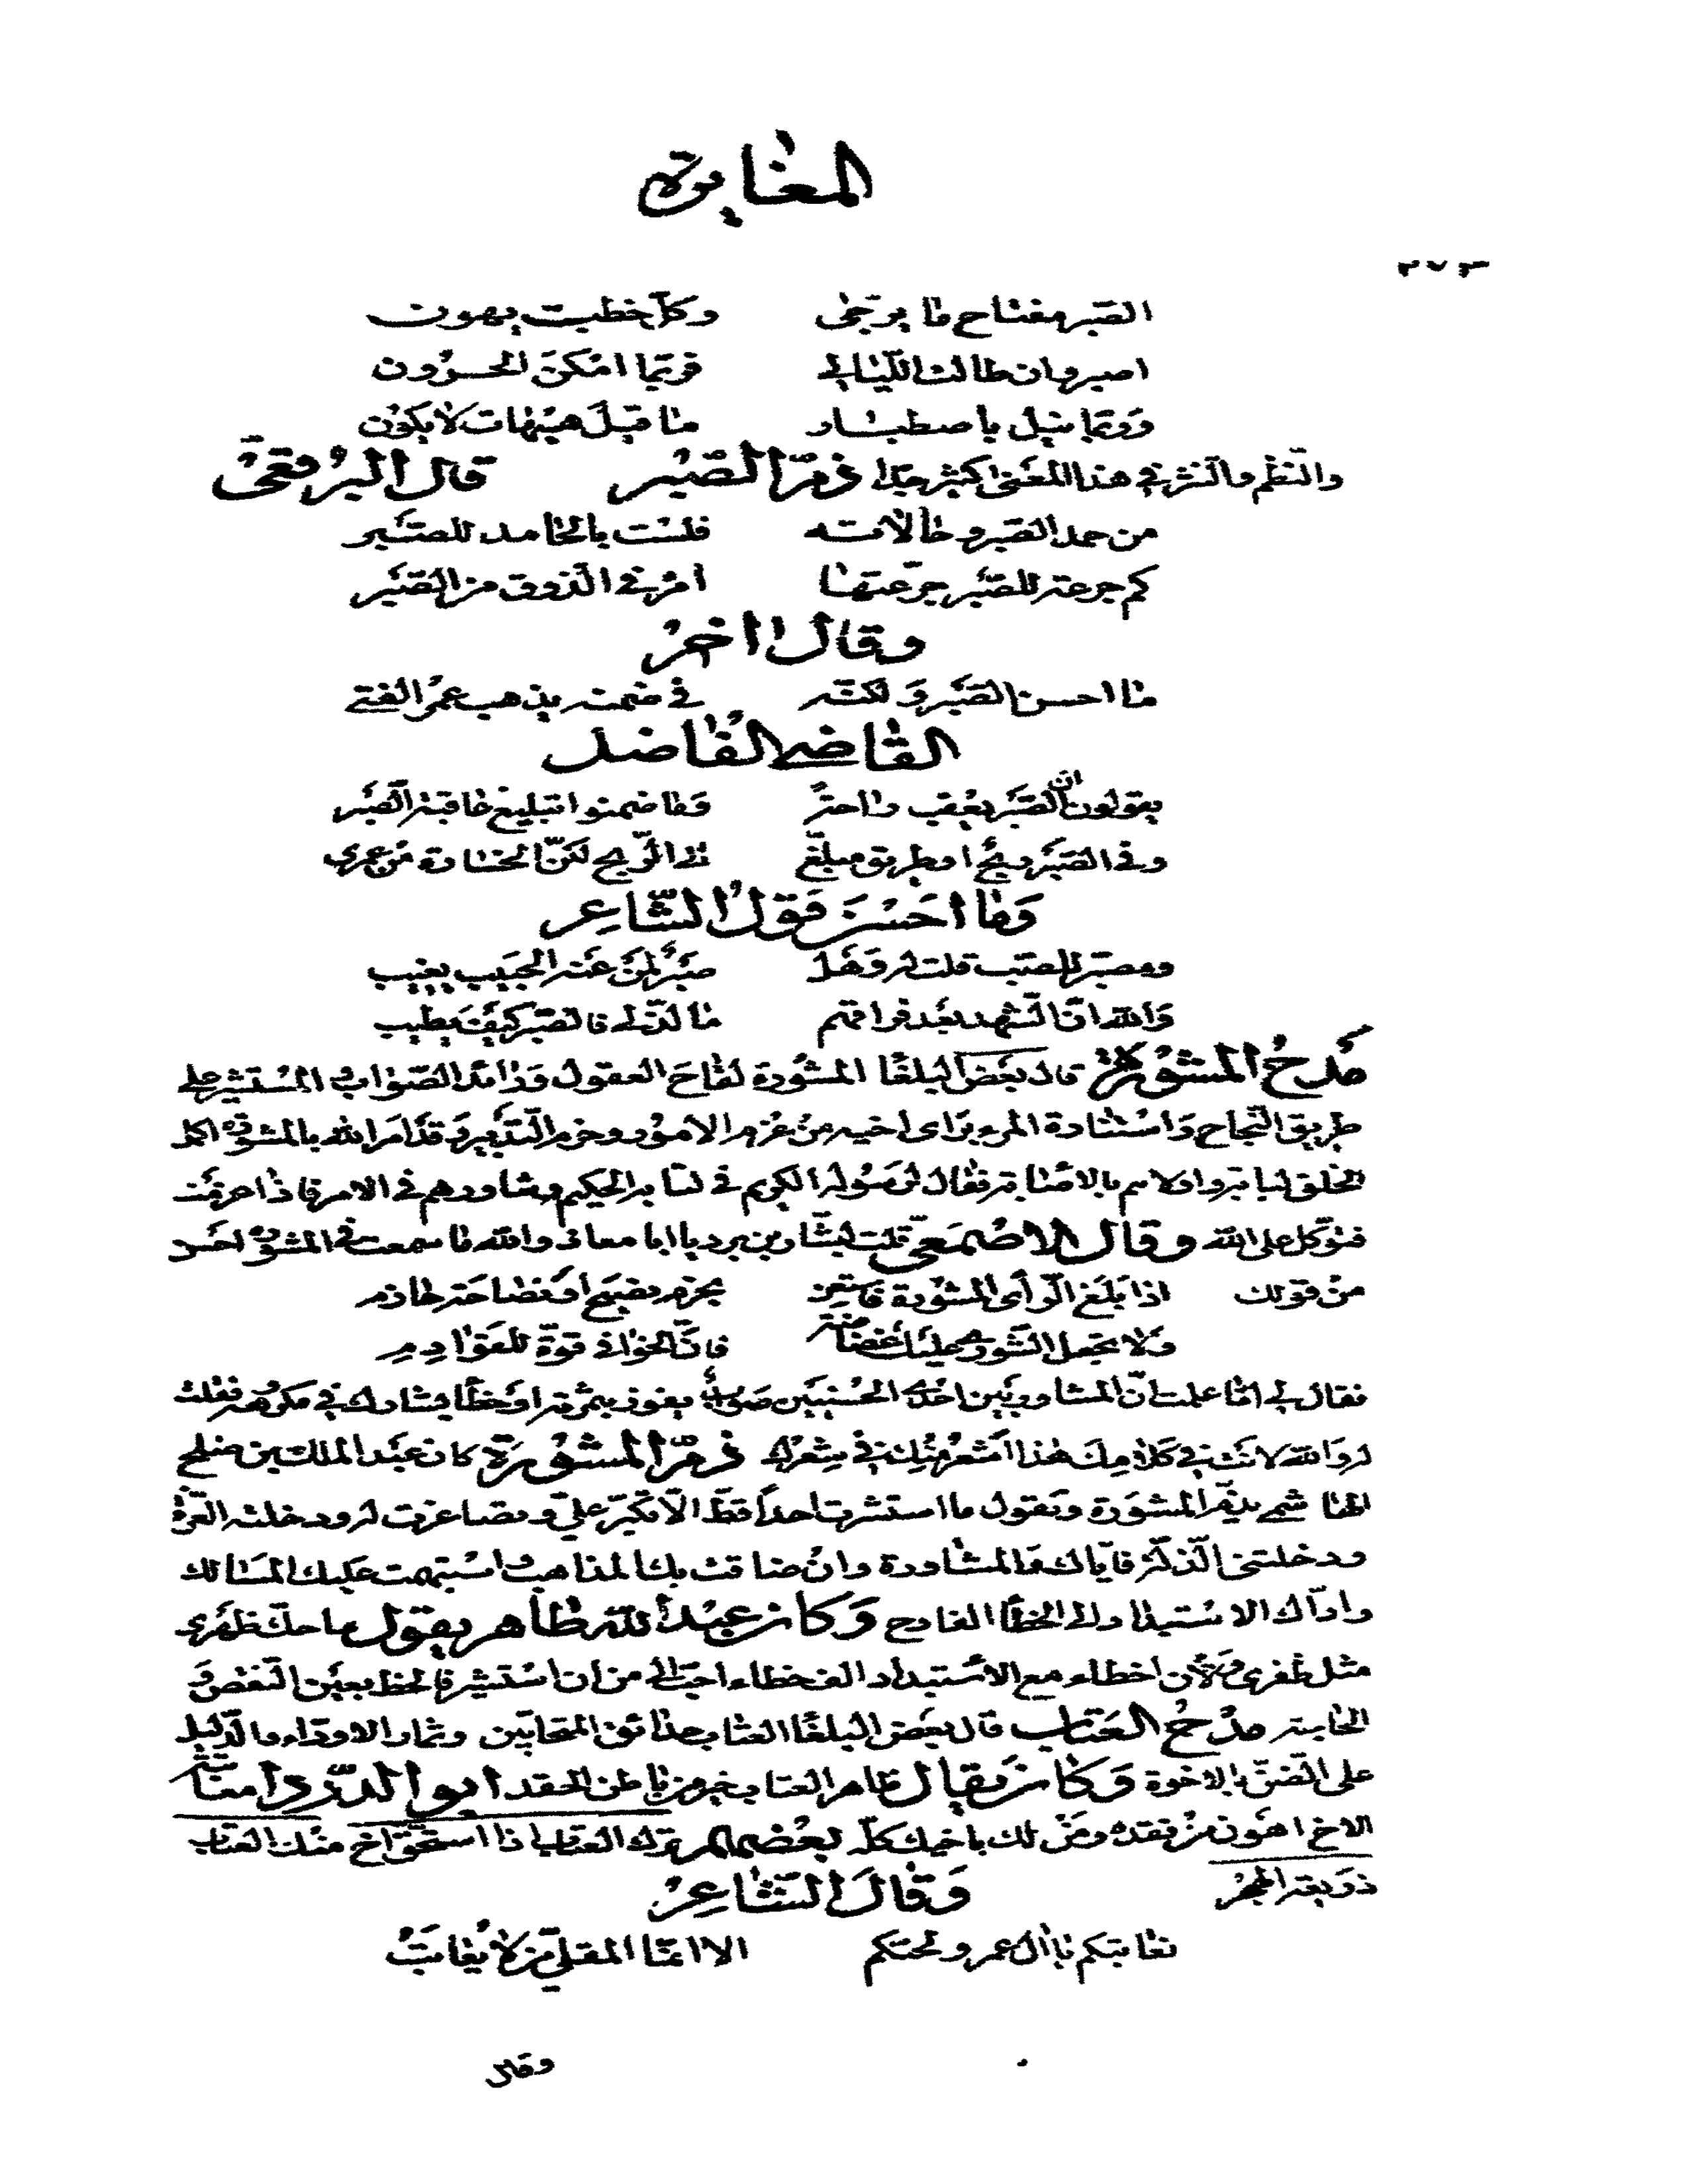 المغايرة
٢٧٣
الصبر مفتاح ما يرجى وكل خطب يهون
اصبر وان طالت الليالي فربما امكن الحزون
وربما نيل باصطبار ما قيل هيهات لا يكون
والنظم والنثر في هذا المعنى كثير جدا ذم الصبر قال البرقعي
من حمد الصبر وحالاته فلست بالحامد للصبر
كم جرعة للصبر جرعتها امر في الذوق من الصبر
وقال اخر
ما احسن الصبر ولكنه في ضمنه يذهب عمر الفتى
القاضي الفاضل
يقولون ان الصبر يعقب راحة وما ضمنوا تبليغ عاقبة الصبر
وفي الصبر ربح او طريق مبلغ الى الربح لكن الخسارة من عمري
وما احسن قول الشاعر
ومصبر للصب قلت له وهل صبر لمن عنه الحبيب يغيب
والله ان الشهد بعد فراقهم ما لذ لي فالصبر كيف يطيب
مدح المشورة قال بعض البلغا المشورة لقاح العقول ورائد الصواب والمستشير على
طريق النجاح واستنارة المرء براى اخيه من عزم الامور وحزم التدبير وقد امر الله بالمشورة اكمل
الخلق لبابة واولاهم بالاصابة فقال لرسوله الكريم في كتابه الحكيم وشاورهم في الامر فاذا عزمت
فتوكل على الله وقال الاصمعي قلت لبشار بن برد يا ابا معاذ والله ما سمعت في المشورة احسن
من قولك اذا بلغ الرأى المشورة فاستعن بحزم نصيح او نصاحة حازم
ولا تجعل الشورى عليك غضاضة فان الخوافي قوة للقوادم
فقال لي اما علمت ان المشاور بين احدى الحسنيين صواب يفوز بثمرته او خطأ يشارك في مكروهه فقلت
له والله لانت في كلامك هذا اشعر منك في شعرك ذم المشورة كان عبد الملك بن صالح
الهاشمي يذم المشورة ويقول ما استشرت احدا قط الا تكبر علي وتصاغرت له ودخلته العزة
ودخلتني الذلة فاياك والمشاورة وان ضاقت بك المذاهب واستبهمت عليك المسالك
واداك الاستبداد الى الخطأ الفادح وكان عبد الله طاهر يقول ما حك ظهري
مثل ظفري ولان اخطاء مع الاستبداد الف خطاء احب الي من ان استشير فالحظ بعين النقص و
الخابية مدح العتاب قال بعض البلغا العتاب حدائق المتحابين وثمار الاوداء والدليل
على الضن بالاخوة وكان يقال ظاهر العتاب خير من باطن الحقد ابو الدردا معاتبة
الاخ اهون من فقده ومن لك باخيك كله بعضهم ترك العتاب اذا استحق اخ منك العتاب
ذريعة الهجر وقال الشاعر
نعاتبكم يا ال عمرو لحبكم الا انما المقلي من لا يعاتب
وقال